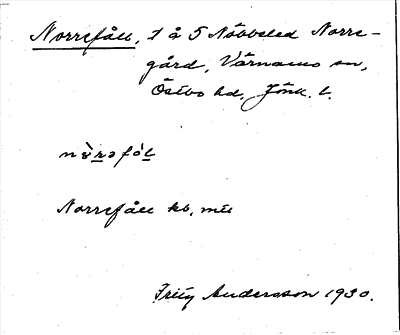 Norrefåll, 1 å 5 Nöbbeled Norre-
gård, Värnamo sn,
Östbo hd, Jönk. l.
Norrefåll kb,
Fritz Andersson 1930.